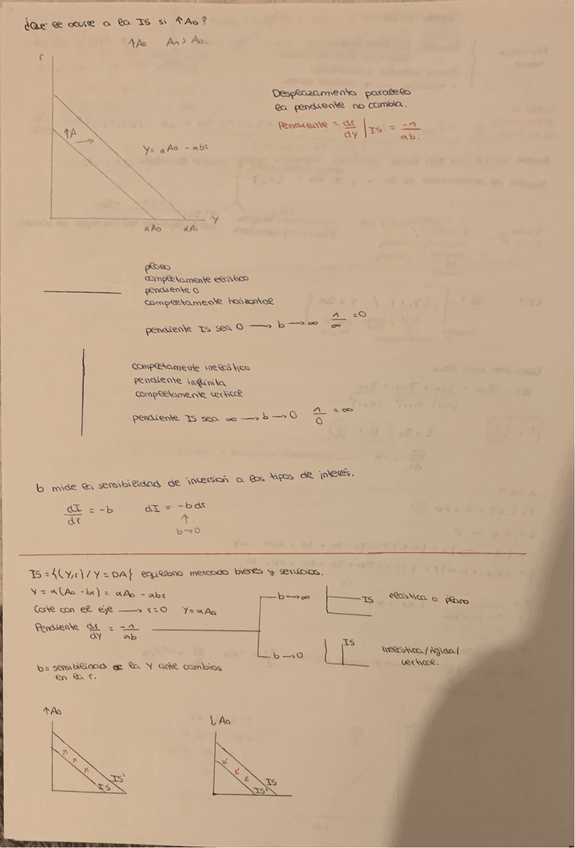 ¿Que le ocurre a la IS si ↑Ao?
↑Ao A1 > Ao.
r
Desplazamiento paralelo
la pendiente no cambia.
Pendiente = dr/dy | IS = -1/αb.
↑A →
Y = αAo - αbr
αAo αA1 Y
plano
completamente elástico
pendiente 0
completamente horizontal
pendiente IS sea 0 → b → ∞ 1/∞ = 0
completamente inelástico
pendiente infinita
completamente vertical
pendiente IS sea ∞ → b → 0 1/0 = ∞
b mide la sensibilidad de inversion a los tipos de interés.
dI/dr = -b dI = -b dr
↑
b→0
IS = {(Y,r) / Y = DA} equilibrio mercado bienes y servicios.
Y = α(Ao - br) = αAo - αbr
Corte con el eje → r=0 Y=αAo
b→∞ IS elástica o plano
Pendiente dr/dy = -1/αb
b→0 IS inelástica/rígida/
vertical.
b = sensibilidad de la Y ante cambios
en la r.
↑Ao ↓Ao
IS' IS
IS IS'